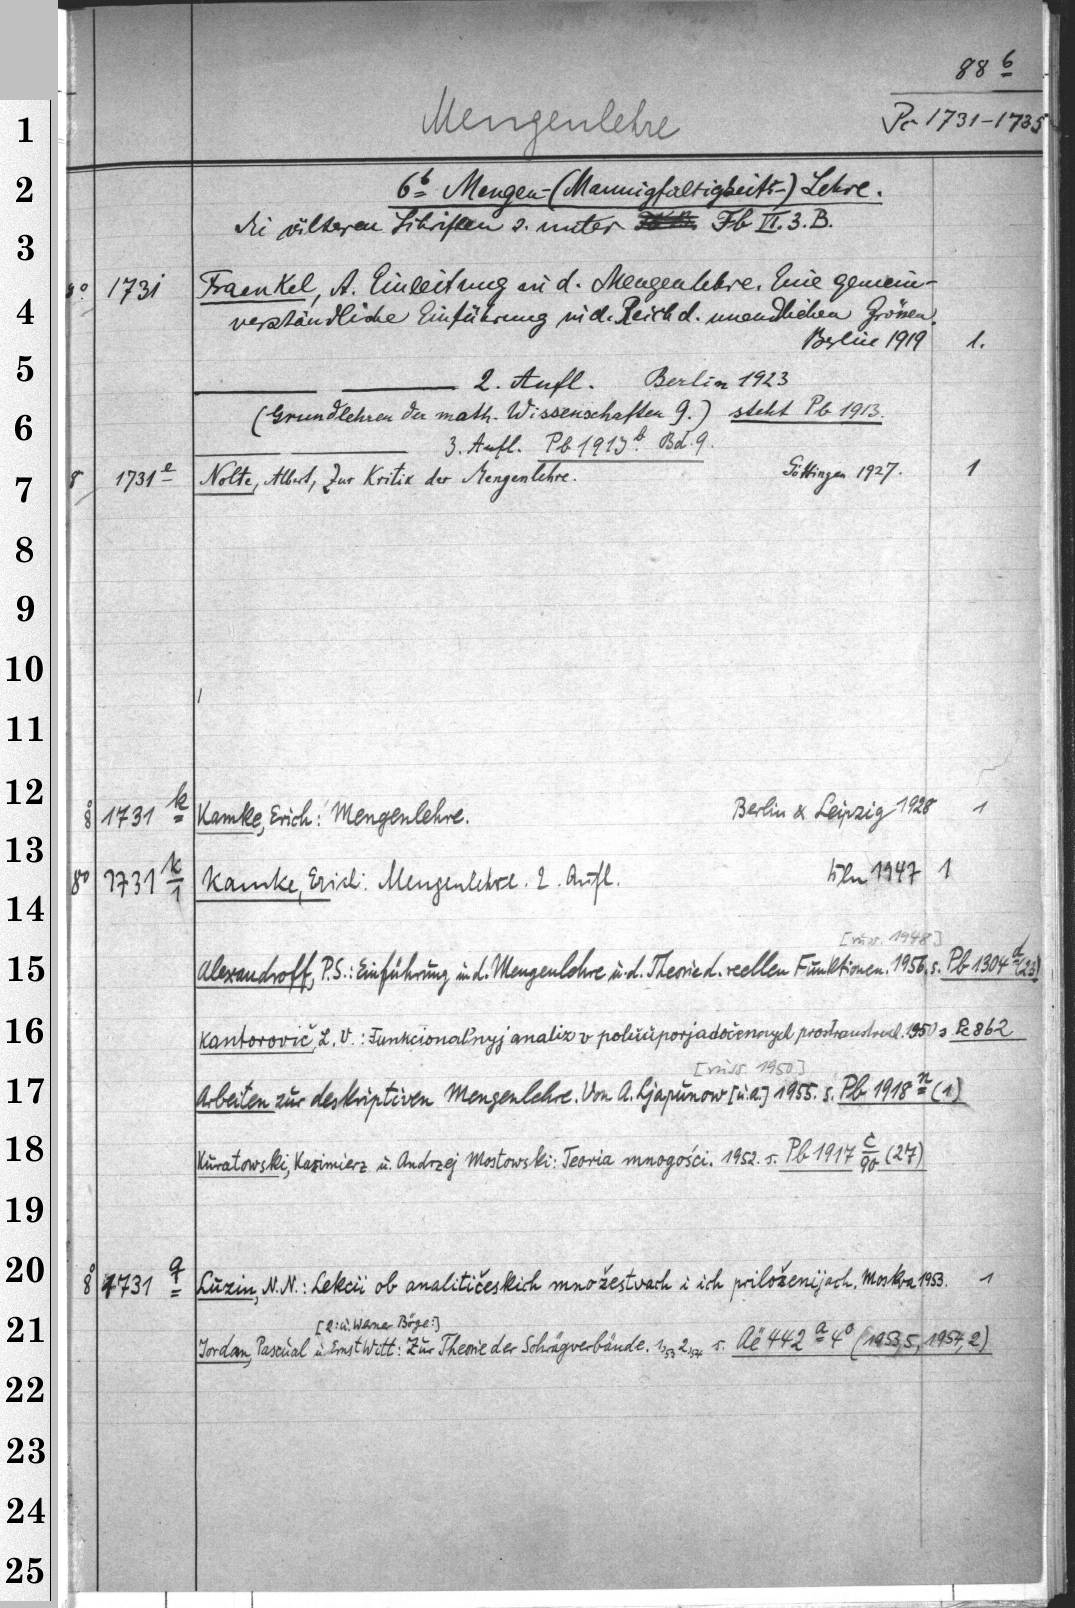 88 b
Mengenlehre
Pc 1731-1735
6b Mengen-(Mannigfaltigkeits-) Lehre.
die älteren Schriften s. unter Fb VI. 3. B.
8° 1731 Fraenkel, A. Einleitung in d. Mengenlehre. Eine gemein-
verständliche Einführung in d. Reich d. unendlichen Grössen.
Berlin 1919 1.
2. Aufl. Berlin 1923
(Grundlehren der math. Wissenschaften 9.) steht Pb 1913.
3. Aufl. Pb 1913 b. Bd. 9.
8 1731 e Nolte, Albert, Zur Kritik der Mengenlehre. Göttingen 1927. 1
8° 1731 k Kamke, Erich: Mengenlehre. Berlin & Leipzig 1928 1
8° 1731 k/1 Kamke, Erich: Mengenlehre. 2. Aufl. Bln 1947 1
[russ. 1948]
Alexandroff, P.S.: Einführung in d. Mengenlehre u. d. Theorie d. reellen Funktionen. 1956. s. Pb 1304 d (23)
Kantorovič, L. V.: Funkcional'nyj analiz v poluuporjadočennych prostranstvach. 1950 s Pc 862
[russ. 1950]
Arbeiten zur deskriptiven Mengenlehre. Von A. Ljapunow [u.a.] 1955. s. Pb 1918 n (1)
Kuratowski, Kazimierz u. Andrzej Mostowski: Teoria mnogości. 1952. s. Pb 1917 c/90 (27)
8° 1731 q Luzin, N.N.: Lekcii ob analitičeskich množestvach i ich priloženijach. Moskva 1953. 1
[2: u. Werner Böge:]
Jordan, Pascual u. Ernst Witt: Zur Theorie der Schrägverbände. 1,53 2,54 s. Aë 442 a 4° (1953,5, 1954,2)